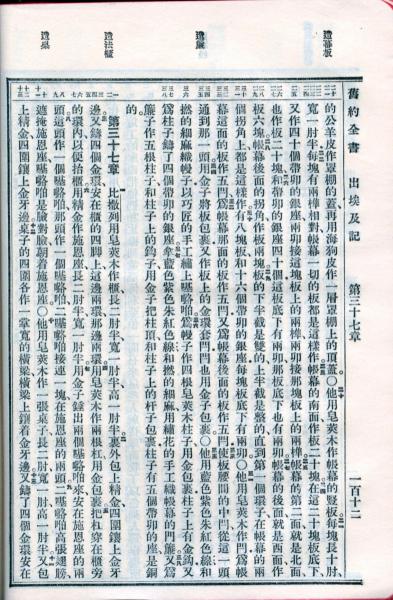 舊約全書 出埃及記 第三十七章 一百十二
造幕板
造簾
造法櫃
造桌
的公羊皮作罩棚的蓋再用海狗皮作一層罩棚上的頂蓋〇他用皂莢木作帳幕的豎板每塊長十肘
寬一肘半每塊有兩榫相對帳幕一切的板都是這樣作帳幕的南面作板二十塊在這二十塊板底下
又作四十個帶卯的銀座兩卯接這塊板上的兩榫兩卯接那塊板上的兩榫帳幕的第二面就是北面
也作板二十塊和帶卯的銀座四十個這板底下有兩卯那板底下也有兩卯帳幕的後面就是西面作
板六塊帳幕後面的拐角作板兩塊板的下半截是雙的上半截是整的直到第一個環子在帳幕的兩
個拐角上都是這樣作有八塊板和十六個帶卯的銀座每塊板底下有兩卯〇他用皂莢木作閂爲帳
幕這面的板作五閂爲帳幕那面的板作五閂又爲帳幕後面的板作五閂使板腰間的中閂從這一頭
通到那一頭用金子將板包裹又作板上的金環套閂閂也用金子包裹〇他用藍色紫色朱紅色線和
撚的細麻織幔子以巧匠的手工繡上𠼻嚕啪爲幔子作四根皂莢木柱子用金包裹柱子上有金鈎又
爲柱子鑄了四個帶卯的銀座拿藍色紫色朱紅色線和撚的細麻用繡花的手工織帳幕的門簾又爲
簾子作五根柱子和柱子上的鈎子用金子把柱頂和柱子上的杆子包裹柱子有五個帶卯的座是銅
的
第三十七章 比撒列用皂莢木作櫃長二肘半寬一肘半高一肘半裏外包上精金四圍鑲上金牙
邊又鑄四個金環安在櫃的四脚上這邊兩環那邊兩環用皂莢木作兩根杠用金包裹把杠穿在櫃旁
的環內以便抬櫃用精金作施恩座長二肘半寬一肘半用金子錘出兩個𠼻嚕啪來安在施恩座的兩
頭這頭作一個𠼻嚕啪那頭作一個𠼻嚕啪二𠼻嚕啪接連一塊在施恩座的兩頭二𠼻嚕啪高張翅膀
遮掩施恩座𠼻嚕啪是臉對臉朝着施恩座〇他用皂莢木作一張桌子長二肘寬一肘高一肘半又包
上精金四圍鑲上金牙邊桌子的四圍各作一掌寬的橫梁橫梁上鑲着金牙邊又鑄了四個金環安在